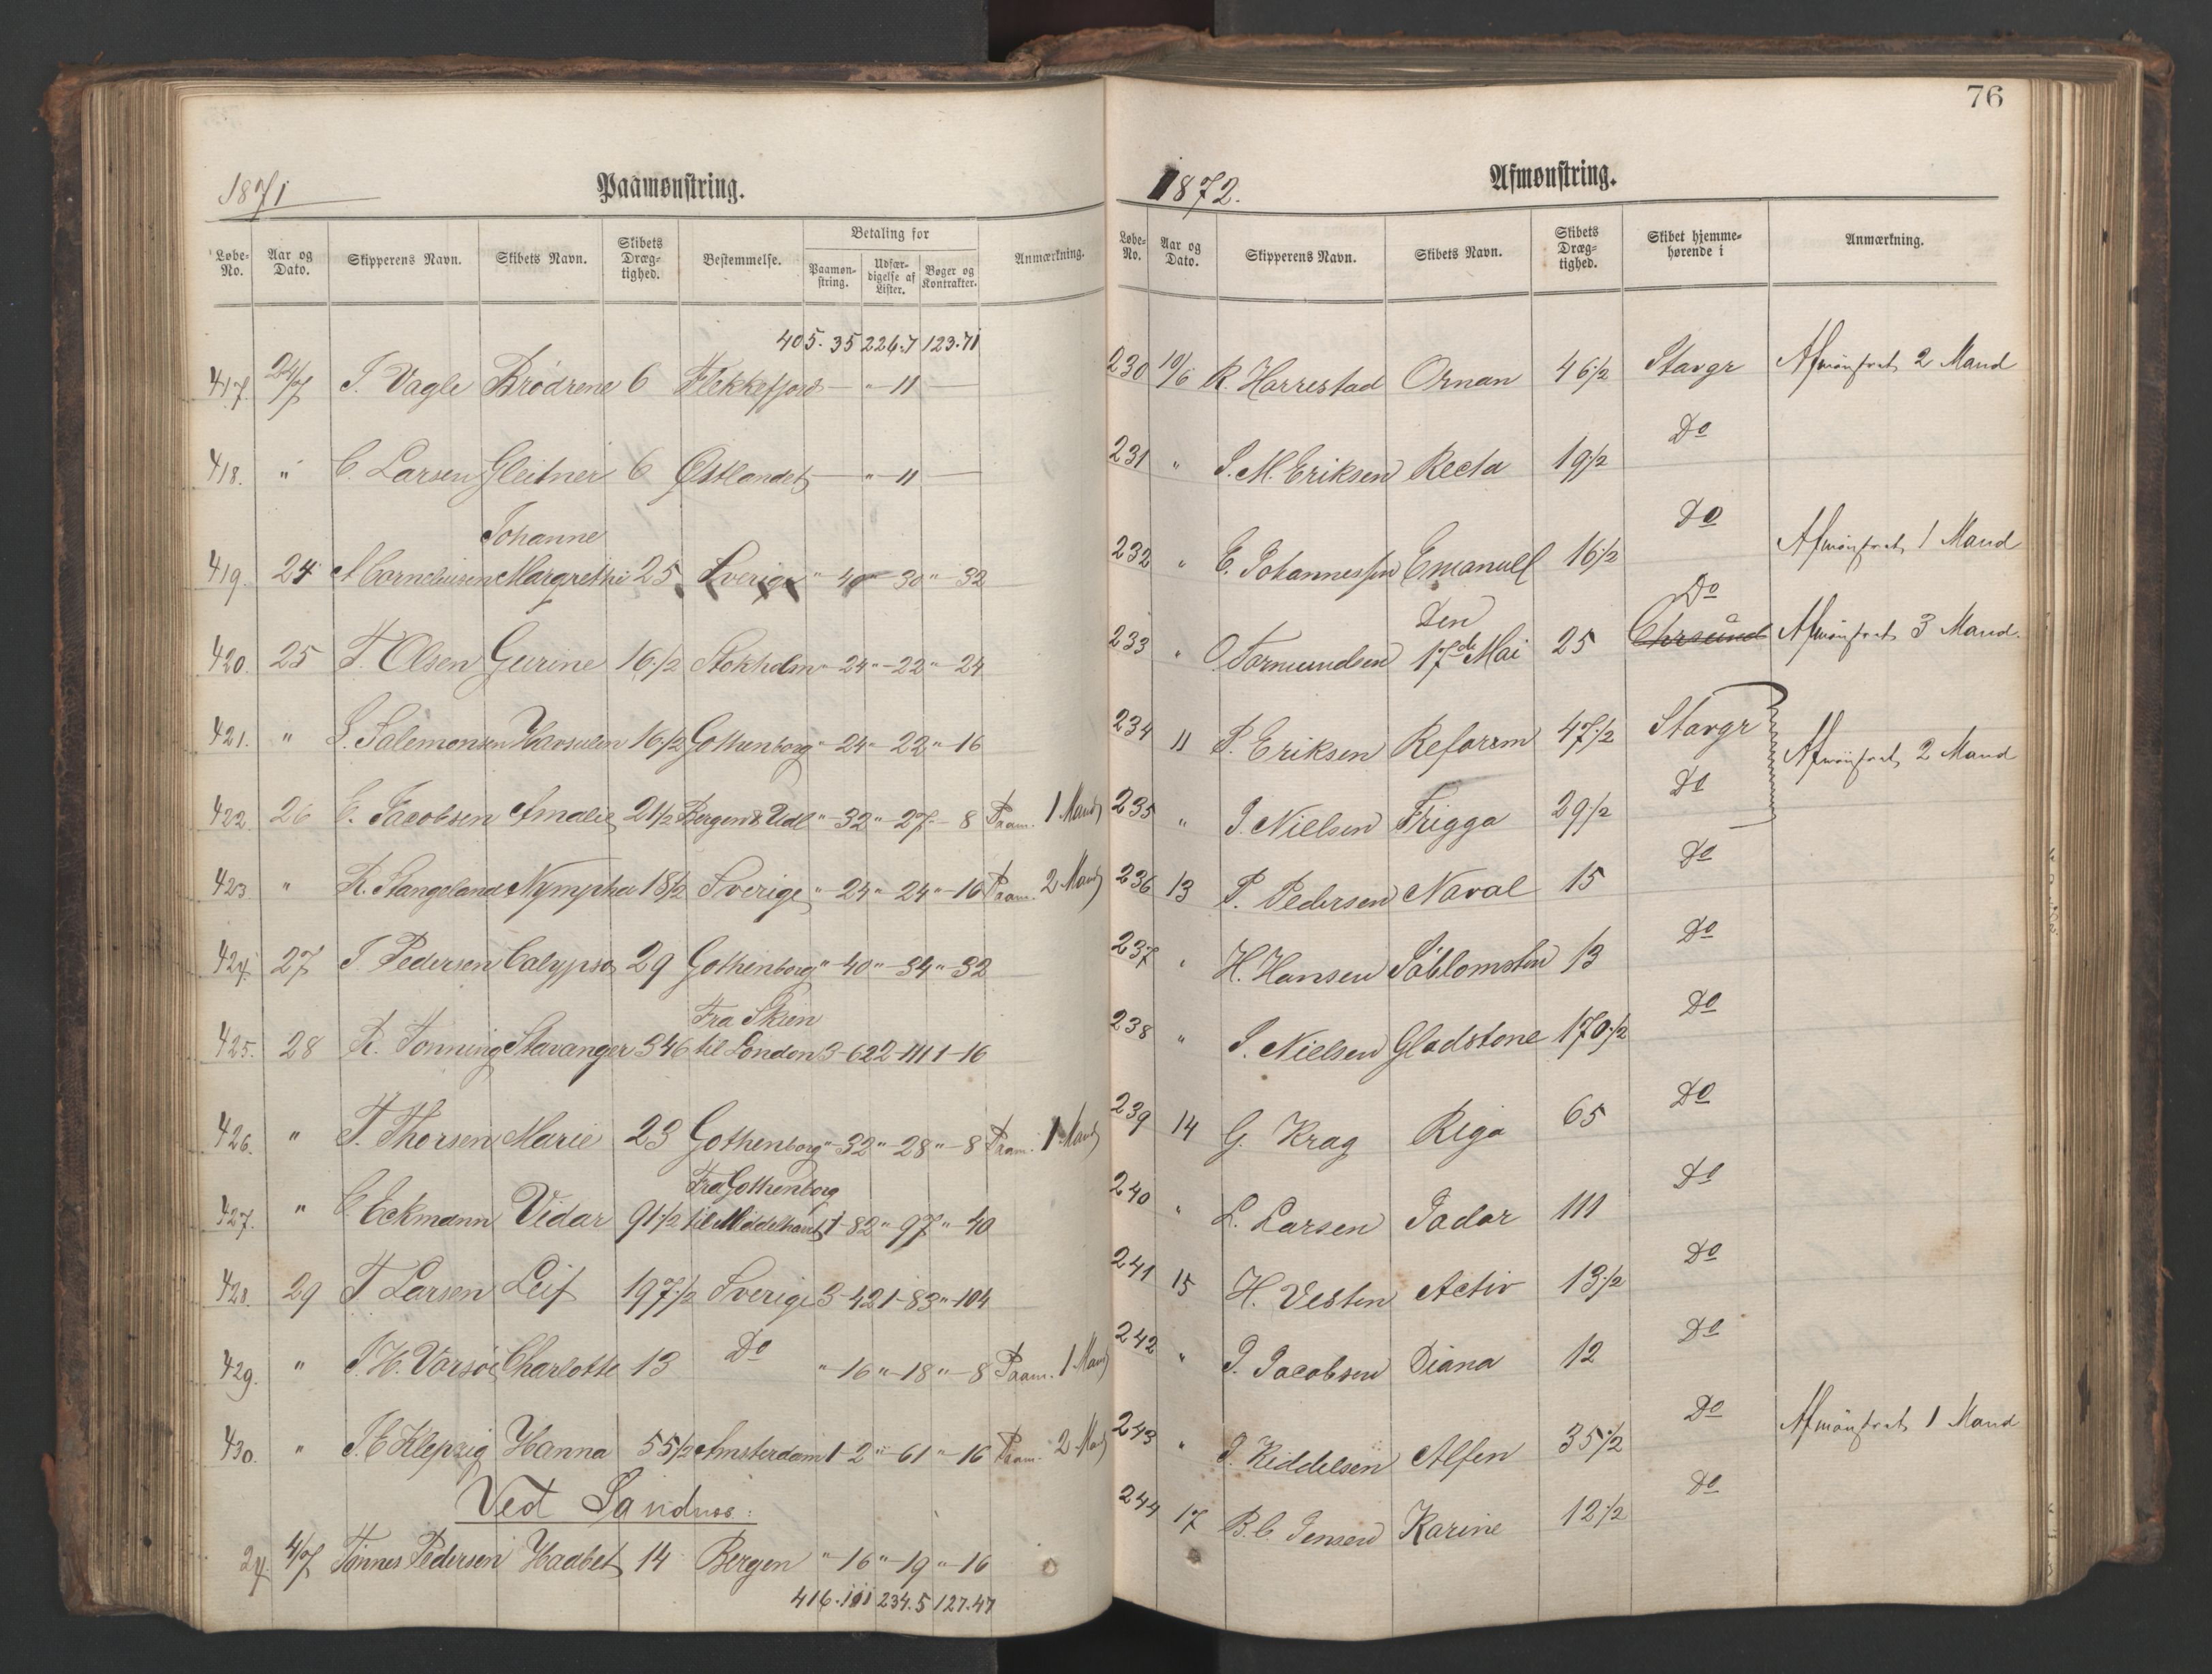 1871
Paamønstring.
Løbe-No. Aar og Dato. Skipperens Navn. Skibets Navn. Skibets Dræg-tighed. Bestemmelse. Betaling for Paamøn-string. Udfær-digelse af Lister. Bøger og Kontrakter. Anmærkning.
405. 35 226.7 123.71
417. 24/7 J. Vagle Brödrene 6 Flekkefjord — " 11 —
418. " C. Larsen Gleitner 6 Østlandet — " 11 —
Johanne
419. 24 A Corneliusen Margrethe 25 Sverige " 40 " 30 " 32
420. 25 T. Olsen Gurine 16 1/2 Stokholm " 24 " 22 " 24
421. " S. Salemonsen 16 1/2 Gothenborg " 24 " 22 " 16
422. 26 E. Jacobsen Amalie 21 1/2 Bergen & Udl " 32 " 27 " 8 Paam. 1 Mand
423 " R. Stangeland Nympha 18 1/2 Sverige " 24 " 24 " 16 Paam. 2 Mand
424. 27 J Pedersen Calypso 29 Gothenborg " 40 " 34 " 32
Fra Skien
425. 28 R. Tonning Stavanger 346 til London 3-62 2-111 1-16
426. " T. Thorsen Marie 23 Gothenborg " 32 " 28 " 8 Paam. 1 Mand
Fra Gothenborg
427. " C. Eckmann Vidar 91 1/2 til Middelhavet 1-82 " 97 " 40
428. 29 T Larsen Leif 197 1/2 Sverige 3-42 1-83 " 104
429. " J. H. Varsöe Charlotte 13 Do " 16 " 18 " 8 Paam. 1 Mand
430. " J. E Klepzig Hanna 55 1/2 Amsterdam 1-2 " 61 " 16 Paam. 2 Mand
Ved Sandnæs:
24. 4/7 Tönnes Pedersen Haabet 14 Bergen " 16 " 19 " 16
416.111 234.5 127.47
76
1872.
Afmønstring.
Løbe-No. Aar og Dato. Skipperens Navn. Skibets Navn. Skibets Dræg-tighed. Skibet hjemme-hørende i Anmærkning.
230 10/6 R. Harrestad Ornan 46 1/2 Stavgr Afmönstret 2 Mand
231 " J. M. Eriksen Recta 19 1/2 Do
232 " E. Johannessen Emanuel 16 1/2 Do Afmönstret 1 Mand
Den Do
233 " O. Tormundsen 17de Mai 25 Chrsund Afmönstret 3 Mand.
234 11 P. Eriksen Reform 47 1/2 Stavgr Afmönstret 2 Mand
235 " J. Nielsen Frigga 29 1/2 Do
236 13 P. Pedersen Naval 15 Do
237 " H. Hansen Söblomsten 13 Do
238 " J. Nielsen Gladstone 170 1/2 Do
239 14 G. Krag Riga 65 Do
240 " L. Larsen Jadar 111 Do
241 15 H. Vesten Activ 13 1/2 Do
242 " J. Jacobsen Diana 12 Do
243 " J. Kiddelsen Alfen 35 1/2 Do Afmönstret 1 Mand
244 17 B. C. Jensen Karine 12 1/2 Do